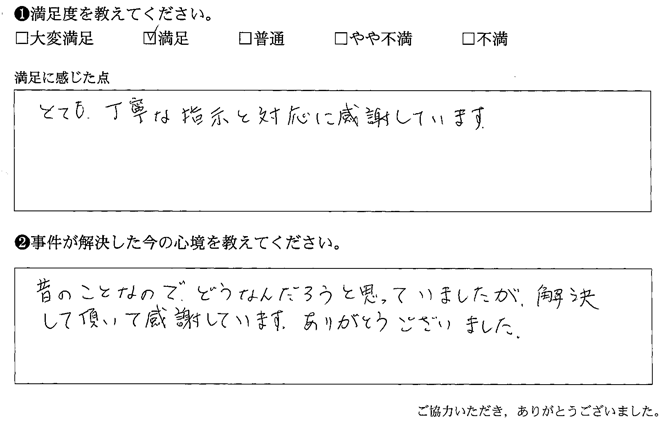 ❶満足度を教えてください。
□大変満足 ☑満足 □普通 □やや不満 □不満
満足に感じた点
とても、丁寧な指示と対応に感謝しています。
❷事件が解決した今の心境を教えてください。
昔のことなので、どうなんだろうと思っていましたが、解決
して頂いて感謝しています。ありがとうございました。
ご協力いただき，ありがとうございました。